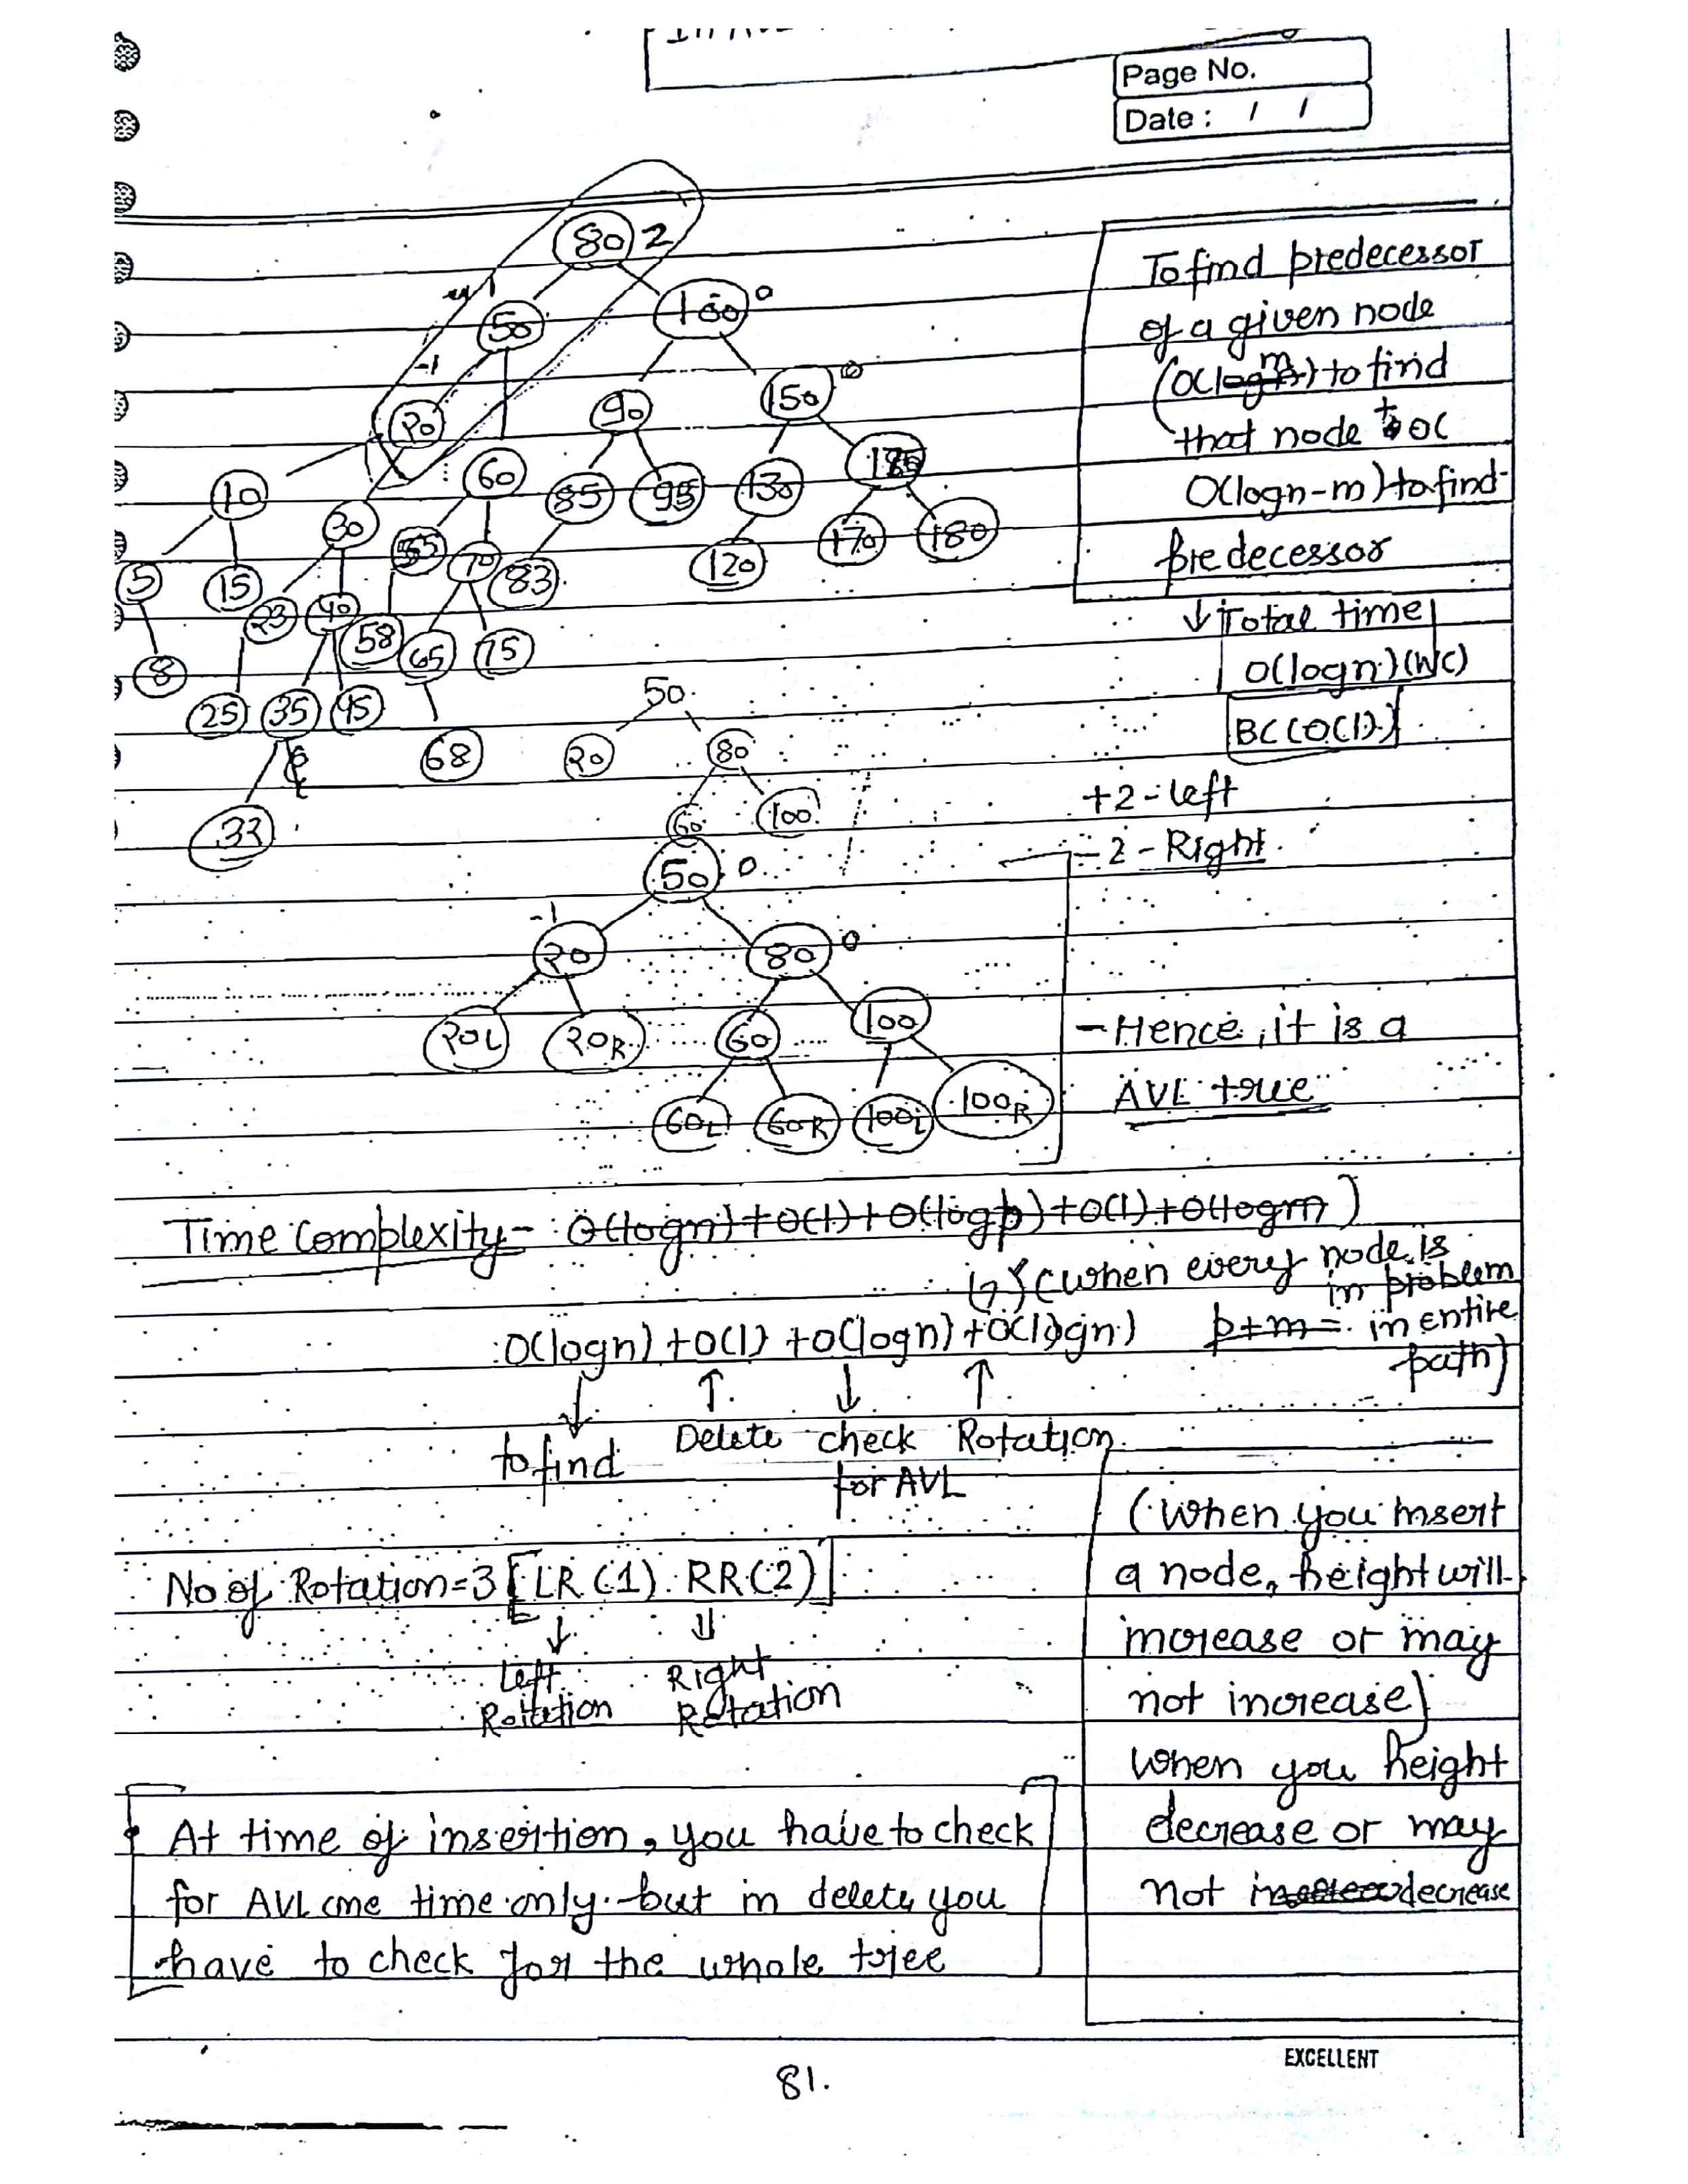 Page No.
Date : / /
80 2
1
50
100 0
-1
20
90
150 0
10
30
60
85
95
130
185
5
15
23
40
55
70
83
120
170
180
8
25
35
45
58
65
75
68
33
To find predecessor
of a given node
(O(logm) to find
that node + O(
O(logn-m) to find
predecessor
↓ Total time
O(logn) (WC)
BC (O(1))
50
20 80
60 100
+2 - left
-2 - Right
50 0
-1
20 80 0
20L 20R 60 100
60L 60R 100L 100R
- Hence, it is a
AVL tree
Time Complexity - O(logn) + O(1) + O(logp) + O(1) + O(logm)
(when every node is
in problem
O(logn) + O(1) + O(logn) + O(logn) p+m = in entire
path)
to find Delete check Rotation
for AVL
No of Rotation = 3 [LR (1) RR (2)]
Left Right
Rotation Rotation
(When you insert
a node, height will
increase or may
not increase)
when you height
decrease or may
not decrease
At time of insertion, you have to check
for AVL one time only but in delete you
have to check for the whole tree
EXCELLENT
81.